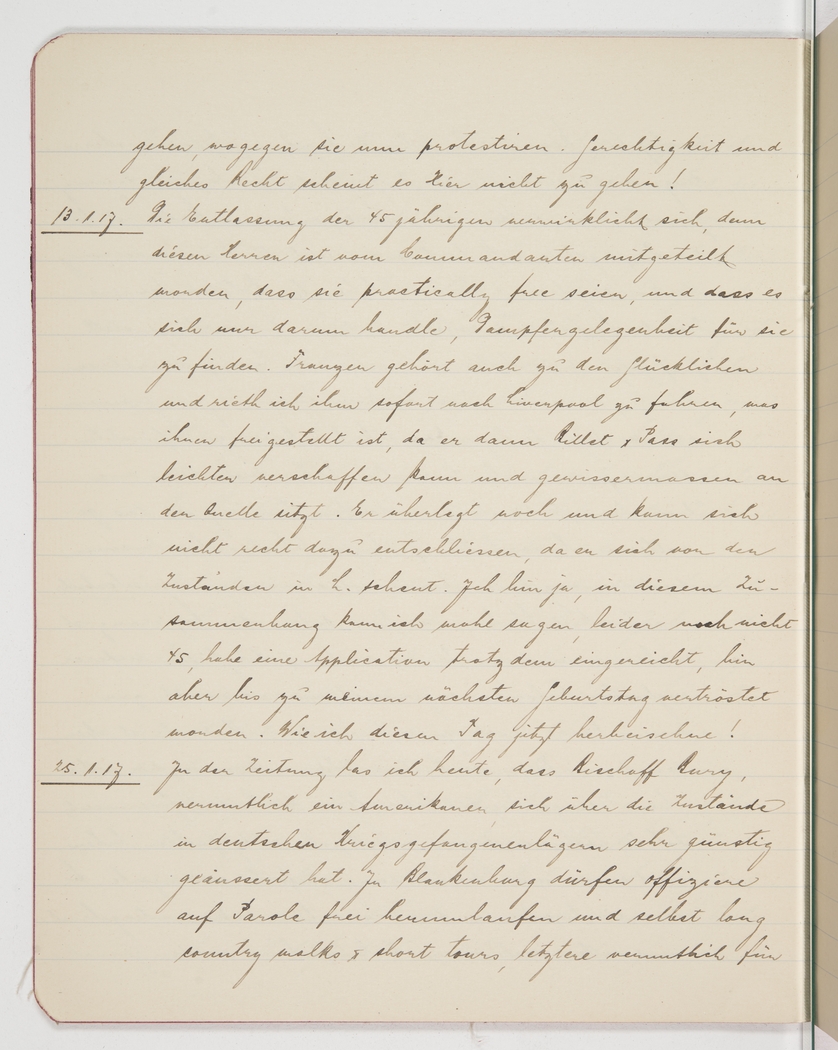 gehen, wogegen sie nun protestiren. Gerechtigkeit und
gleiches Recht scheint es hier nicht zu geben!
13.1.17. Die Entlassung der 45 jährigen verwirklicht sich, denn
diesen Herren ist vom Commandanten mitgeteilt
worden, dass sie practically free seien, und dass es
sich nur darum handle, Dampfergelegenheit für sie
zu finden. Franzen gehört auch zu den Glücklichen
und rieth ich ihm sofort nach Liverpool zu fahren, was
ihnen freigestellt ist, da er dann Billet & Pass sich
leichter verschaffen kann und gewissermassen an
der Quelle sitzt. Er überlegt noch und kann sich
nicht recht dazu entschliessen, da er sich vor den
Zuständen in L. scheut. Ich bin ja, in diesem Zu-
sammenhang kann ich wohl sagen, leider noch nicht
45, habe eine Application trotzdem eingereicht, bin
aber bis zu meinem nächsten Geburtstag vertröstet
worden. Wie ich diesen Tag jetzt herbeisehne!
25.1.17. In der Zeitung las ich heute, dass Bischoff Bury,
vermutlich ein Amerikaner, sich über die Zustände
in deutschen Kriegsgefangenenlägern sehr günstig
geäussert hat. In Blankenburg dürfen offiziere
auf Parole frei herumlaufen und selbst long
country walks & short tours, letztere vermutlich für